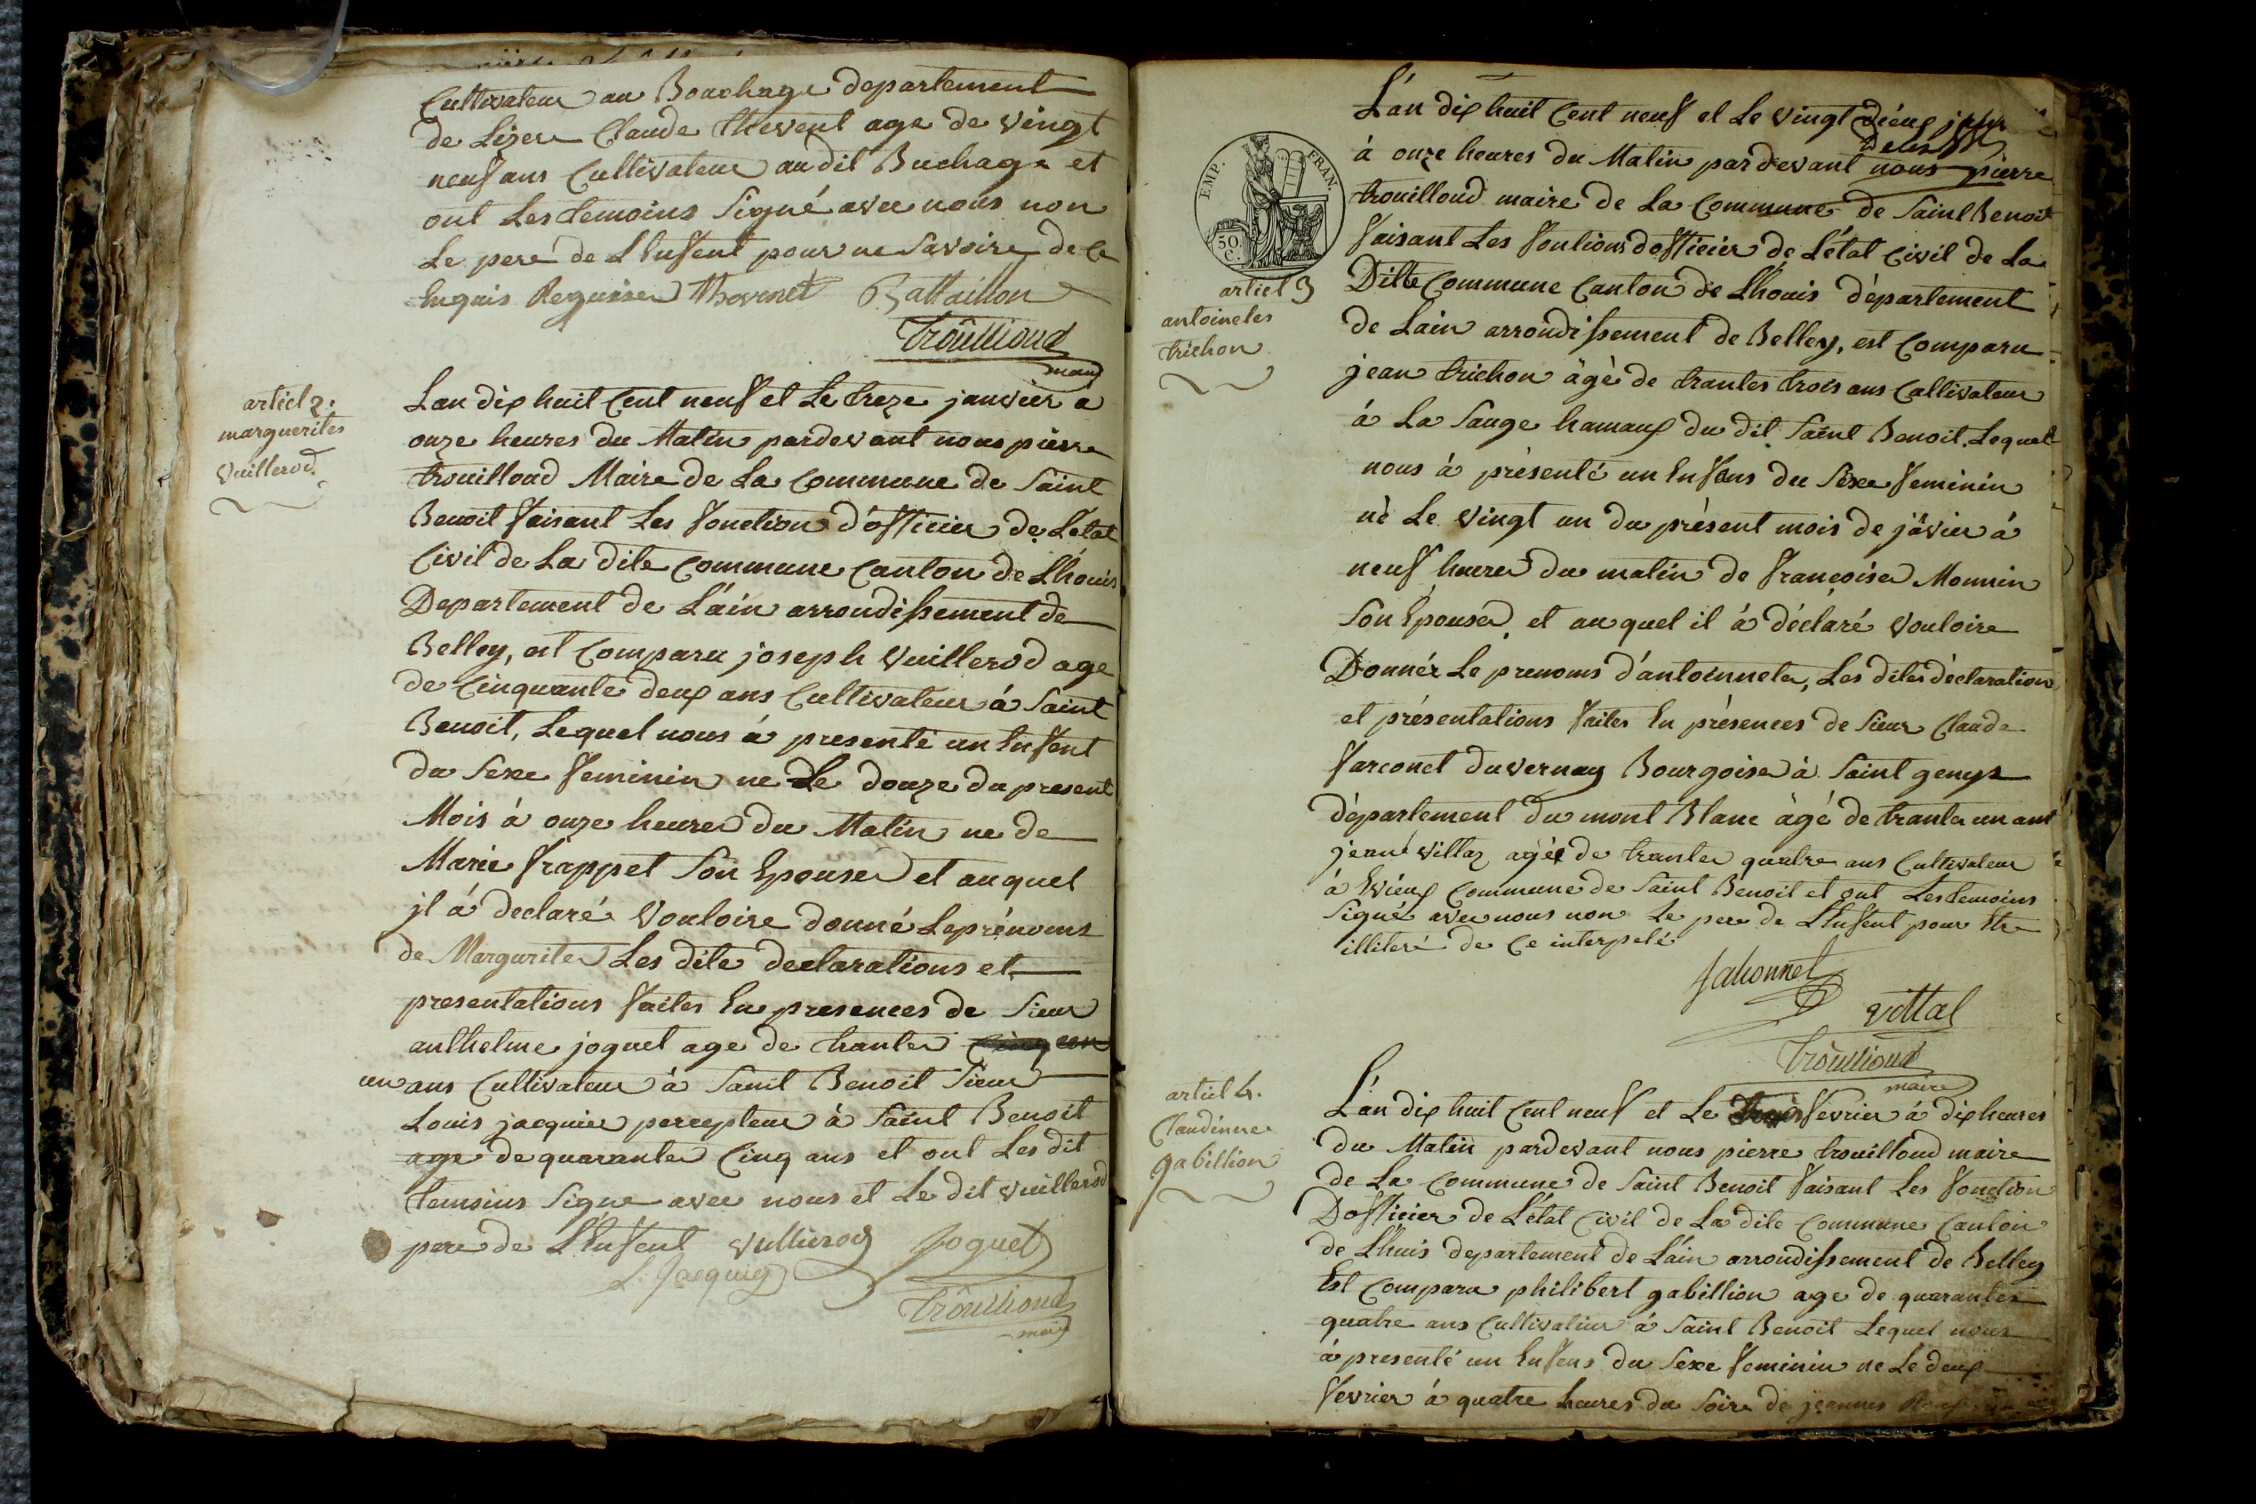 Cultivateur au Bouchage departement
de Lizere Claude thevent age de vingt
neuf ans Cultivateur au dit Buchage et
ont Les temoins Signé avec nous non
Le pere de L'Enfent pour ne Savoire de ce
Enquis Requise Thovenet Battaillon
Trouilloud
maire
articl 2.
marguerites
Vuillerod
Lan dix huit Cent neuf et Le treze janvier à
onze heures du Matin pardevant nous pierre
trouilloud Maire de La Commune de Saint
Benoit faisant Les fonctions d'officier de L'état
Civil de La dite Commune Canton de Lhouis
Departement de L'ain arrondissement de
Belley, est Comparu joseph Vuillerod age
de Cinquante deux ans Cultivateur à Saint
Benoit, Lequel nous à presenté un Enfent
du Sexe feminin ne Le douze du present
Mois à onze heures du Matin ne de
Marie frappet Son Epouse et auquel
jl à declaré Vouloire donné Leprénoms
de Margurite Les dite declarations et
presentations faites En presences de Sieur
anthelme joguet age de trante
un ans Cultivateur à Saint Benoit Sieur
Louis jacquier percepteur à Saint Benoit
age de quarante Cinq ans et ont Les dit
temoins Signe avec nous et Le dit vuillerod
pere de L'Enfent Vullierod Joguet
L. Jacquier
Trouilloud
maire
EMP. FRAN.
50 C.
articl 3
antoinetes
trichon
L'an dix huit Cent neuf et Le Vingt dieux jour
à onze heures du Matin pardevant nous pierre
trouilloud maire de La Commune de Saint Benoit
faisant Les fontions d'officier de L'état Civil de La
Ditte Commune Canton de Lhouis département
de Lain arrondissement de Belley, est Comparu
jean trichon âgé de trantes trois ans Cultivateur
à La Sauge hamaux du dit Saint Benoit. Lequel
nous à présenté un Enfens du Sexe feminin
nè Le Vingt un du présent mois de jävier à
neuf heures du matin de françoise Monnin
Son Epouse, et auquel il à déclaré Vouloire
Donnér Le prenoms d'antoinnete, Les dites déclaration
et présentations faites En présences de Sieur Claude
farconet duvernay Bourgoise à Saint genys
département du mont Blanc âgé de trante un ant
jean villaz agée de trante quatre ans Cultivateur
à Evieux Commune de Saint Benoit et ont Les temoins
Signé avec nous non Le pere de L'Enfent pour Etre
illiteré de Ce interpelé
Vittal
Trouilloud
maire
articl 4.
Claudinne
gabillion
L'an dix huit Cent neuf et Le trois fevrier à dix heures
du Matin pardevant nous pierre trouilloud maire
de La Commune de Saint Benoit faisant Les fonction
D'officier de L'état Civil de La dite Commune Canton
de Lhuis departement de L'ain arrondissement de Belley
Est Comparu philibert gabillion age de quarantes
quatre ans Cultivateur à Saint Benoit Lequel nous
à presenté un Enfens du Sexe feminin ne Le deux
fevrier à quatre heures du Soire de jeannes